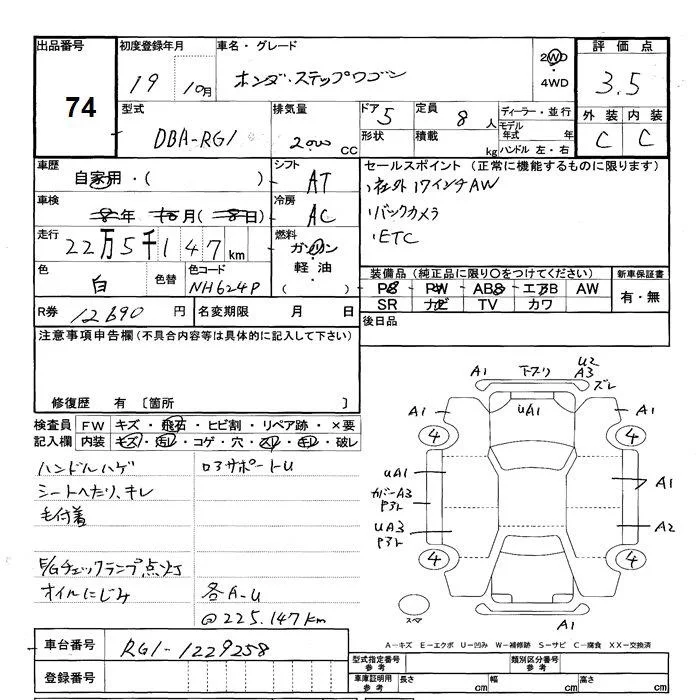 出品番号 初度登録年月 車名・グレード 評価点
74 19 10月 ホンダ・ステップワゴン 2WD ・ 4WD 3.5
型式 排気量 ドア 5 定員 8 人 ディーラー・並行 外装 内装
DBA-RG1 2000 cc 形状 積載 kg モデル年式 年 C C
ハンドル 左・右
車歴 シフト セールスポイント (正常に機能するものに限ります)
自家用・( ) AT ・社外17インチAW
車検 冷房 ・バックカメラ
8年 10月(8日) AC ・ETC
走行 燃料
22万5千147km ガソリン・軽油( )
色 色替 色コード 装備品(純正品に限り〇をつけてください) 新車保証書
白 NH624P PS PW ABS エアB AW 有・無
SR ナビ TV カワ
R券 12690 円 名変期限 月 日 後日品
注意事項申告欄(不具合内容等は具体的に記入して下さい)
修復歴 有 〔箇所 〕
検査員 FW キズ・飛石・ヒビ割・リペア跡・×要
記入欄 内装 キズ・汚レ・コゲ・穴・スレ・キレ・破レ
ハンドルハゲ ロアサポートU
シートヘたり、キレ
毛付着
E/Gチェックランプ点灯
オイルにじみ 各A-U
@225.147km
A1 下ブリ U2
A3
ズレ
A1 uA1 A1
4 4
uA1 A1
カバーA3
P3ト
UA3 A2
P3ト
4 4
スペア A1
A-キズ E-エクボ U-凹み W-補修跡 S-サビ C-腐食 XX-交換済
車台番号 RG1-1229258
登録番号
型式指定番号 参考 類別区分番号 参考
車庫証明用 参考 長さ cm 幅 cm 高さ cm